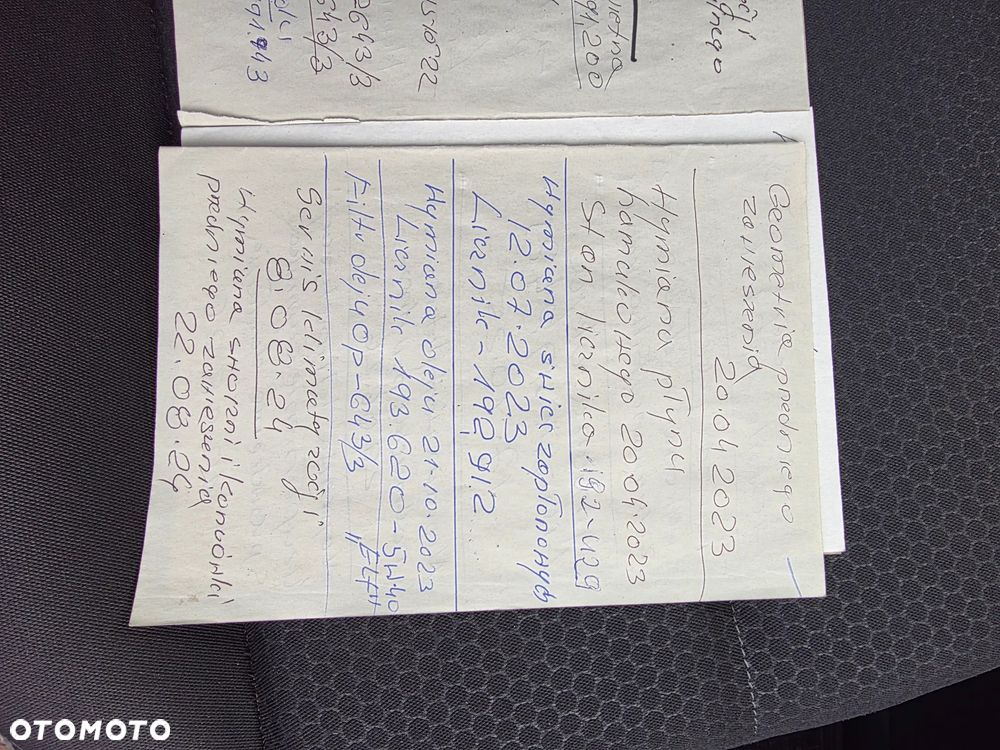 Geometria predniego
zawieszenia
20.04 2023
Wymianu płynu
hamulcowego 20.04.2023
Stan licznika 192.429
Wymiana świec zapłonowych
12.07.2023
Licznik - 192912
Wymiana oleju 21.10.2023
Licznik 193.620 - 5W40
Filtr oleju OP-643/3 "ELFH
Serwis klimatyzacji
8.08.24
Wymiana sworzni i końcówki
predniego zawieszenia
22.08.24
643/3
OTOMOTO